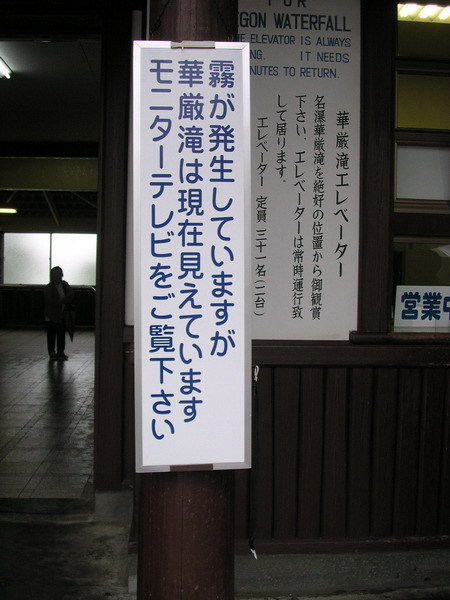 霧が発生していますが
華厳滝は現在見えています
モニターテレビをご覧下さい
FOR
GON WATERFALL
E ELEVATOR IS ALWAYS
NG. IT NEEDS
NUTES TO RETURN.
華厳滝エレベーター
名瀑華厳滝を絶好の位置から御観賞
下さい．エレベーターは常時運行致
して居ります．
エレベーター 定員 三十一名(二台)
営業中